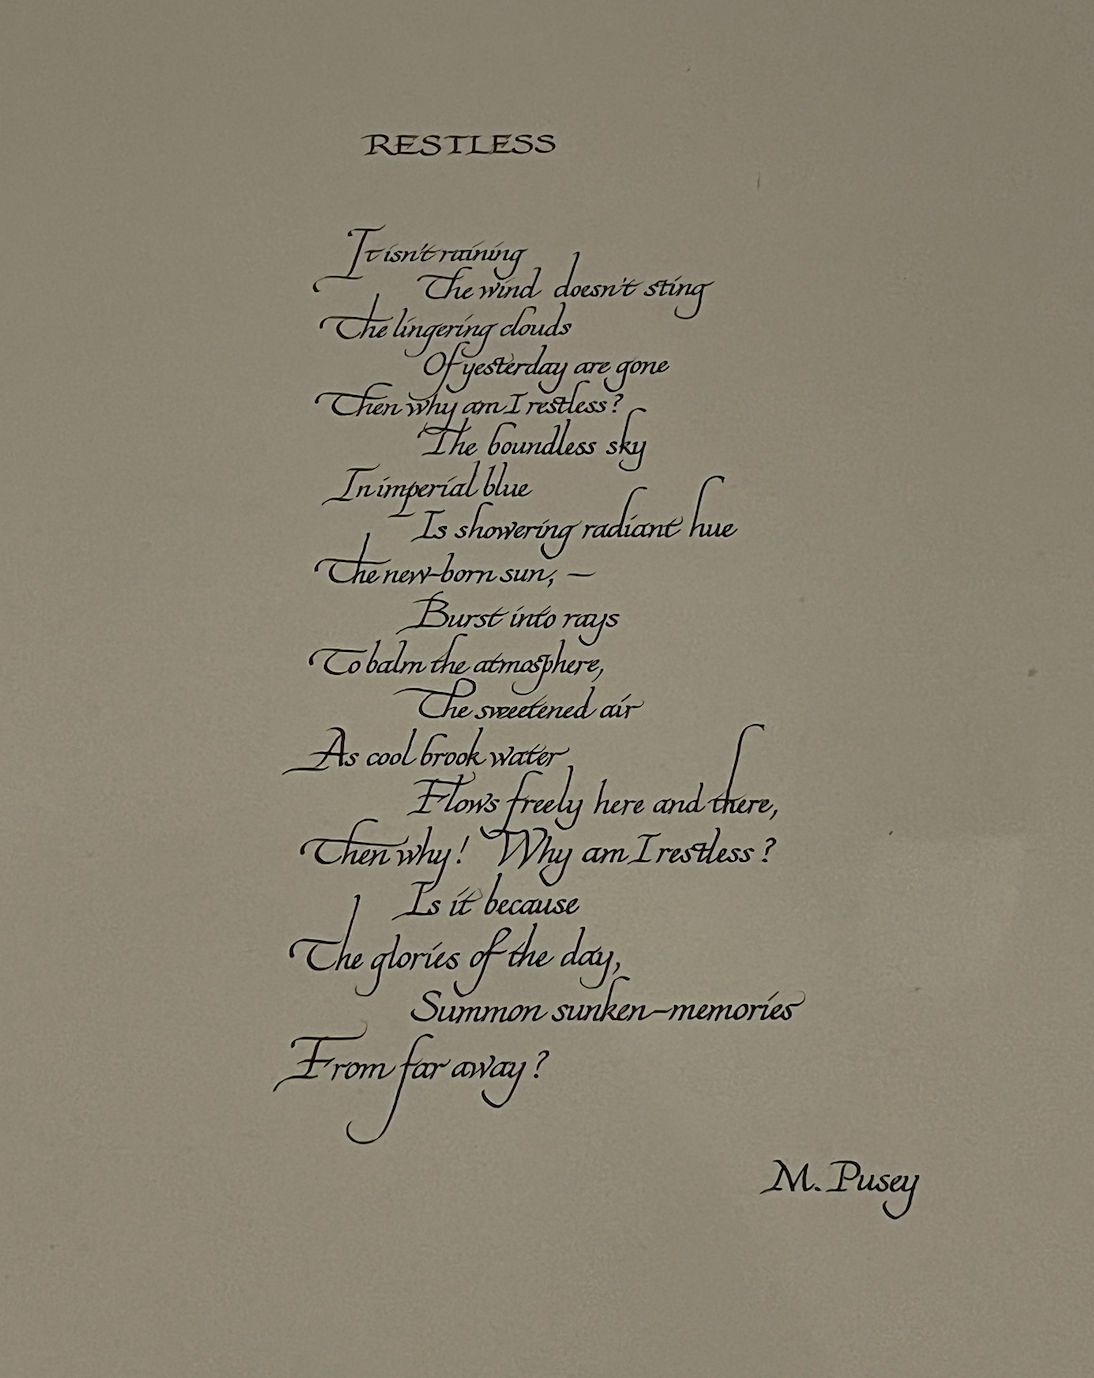 RESTLESS
It isn't raining
The wind doesn't sting
The lingering clouds
Of yesterday are gone
Then why am I restless?
The boundless sky
In imperial blue
Is showering radiant hue
The new-born sun, —
Burst into rays
To balm the atmosphere,
The sweetened air
As cool brook water
Flows freely here and there,
Then why! Why am I restless?
Is it because
The glories of the day,
Summon sunken-memories
From far away?
M. Pusey